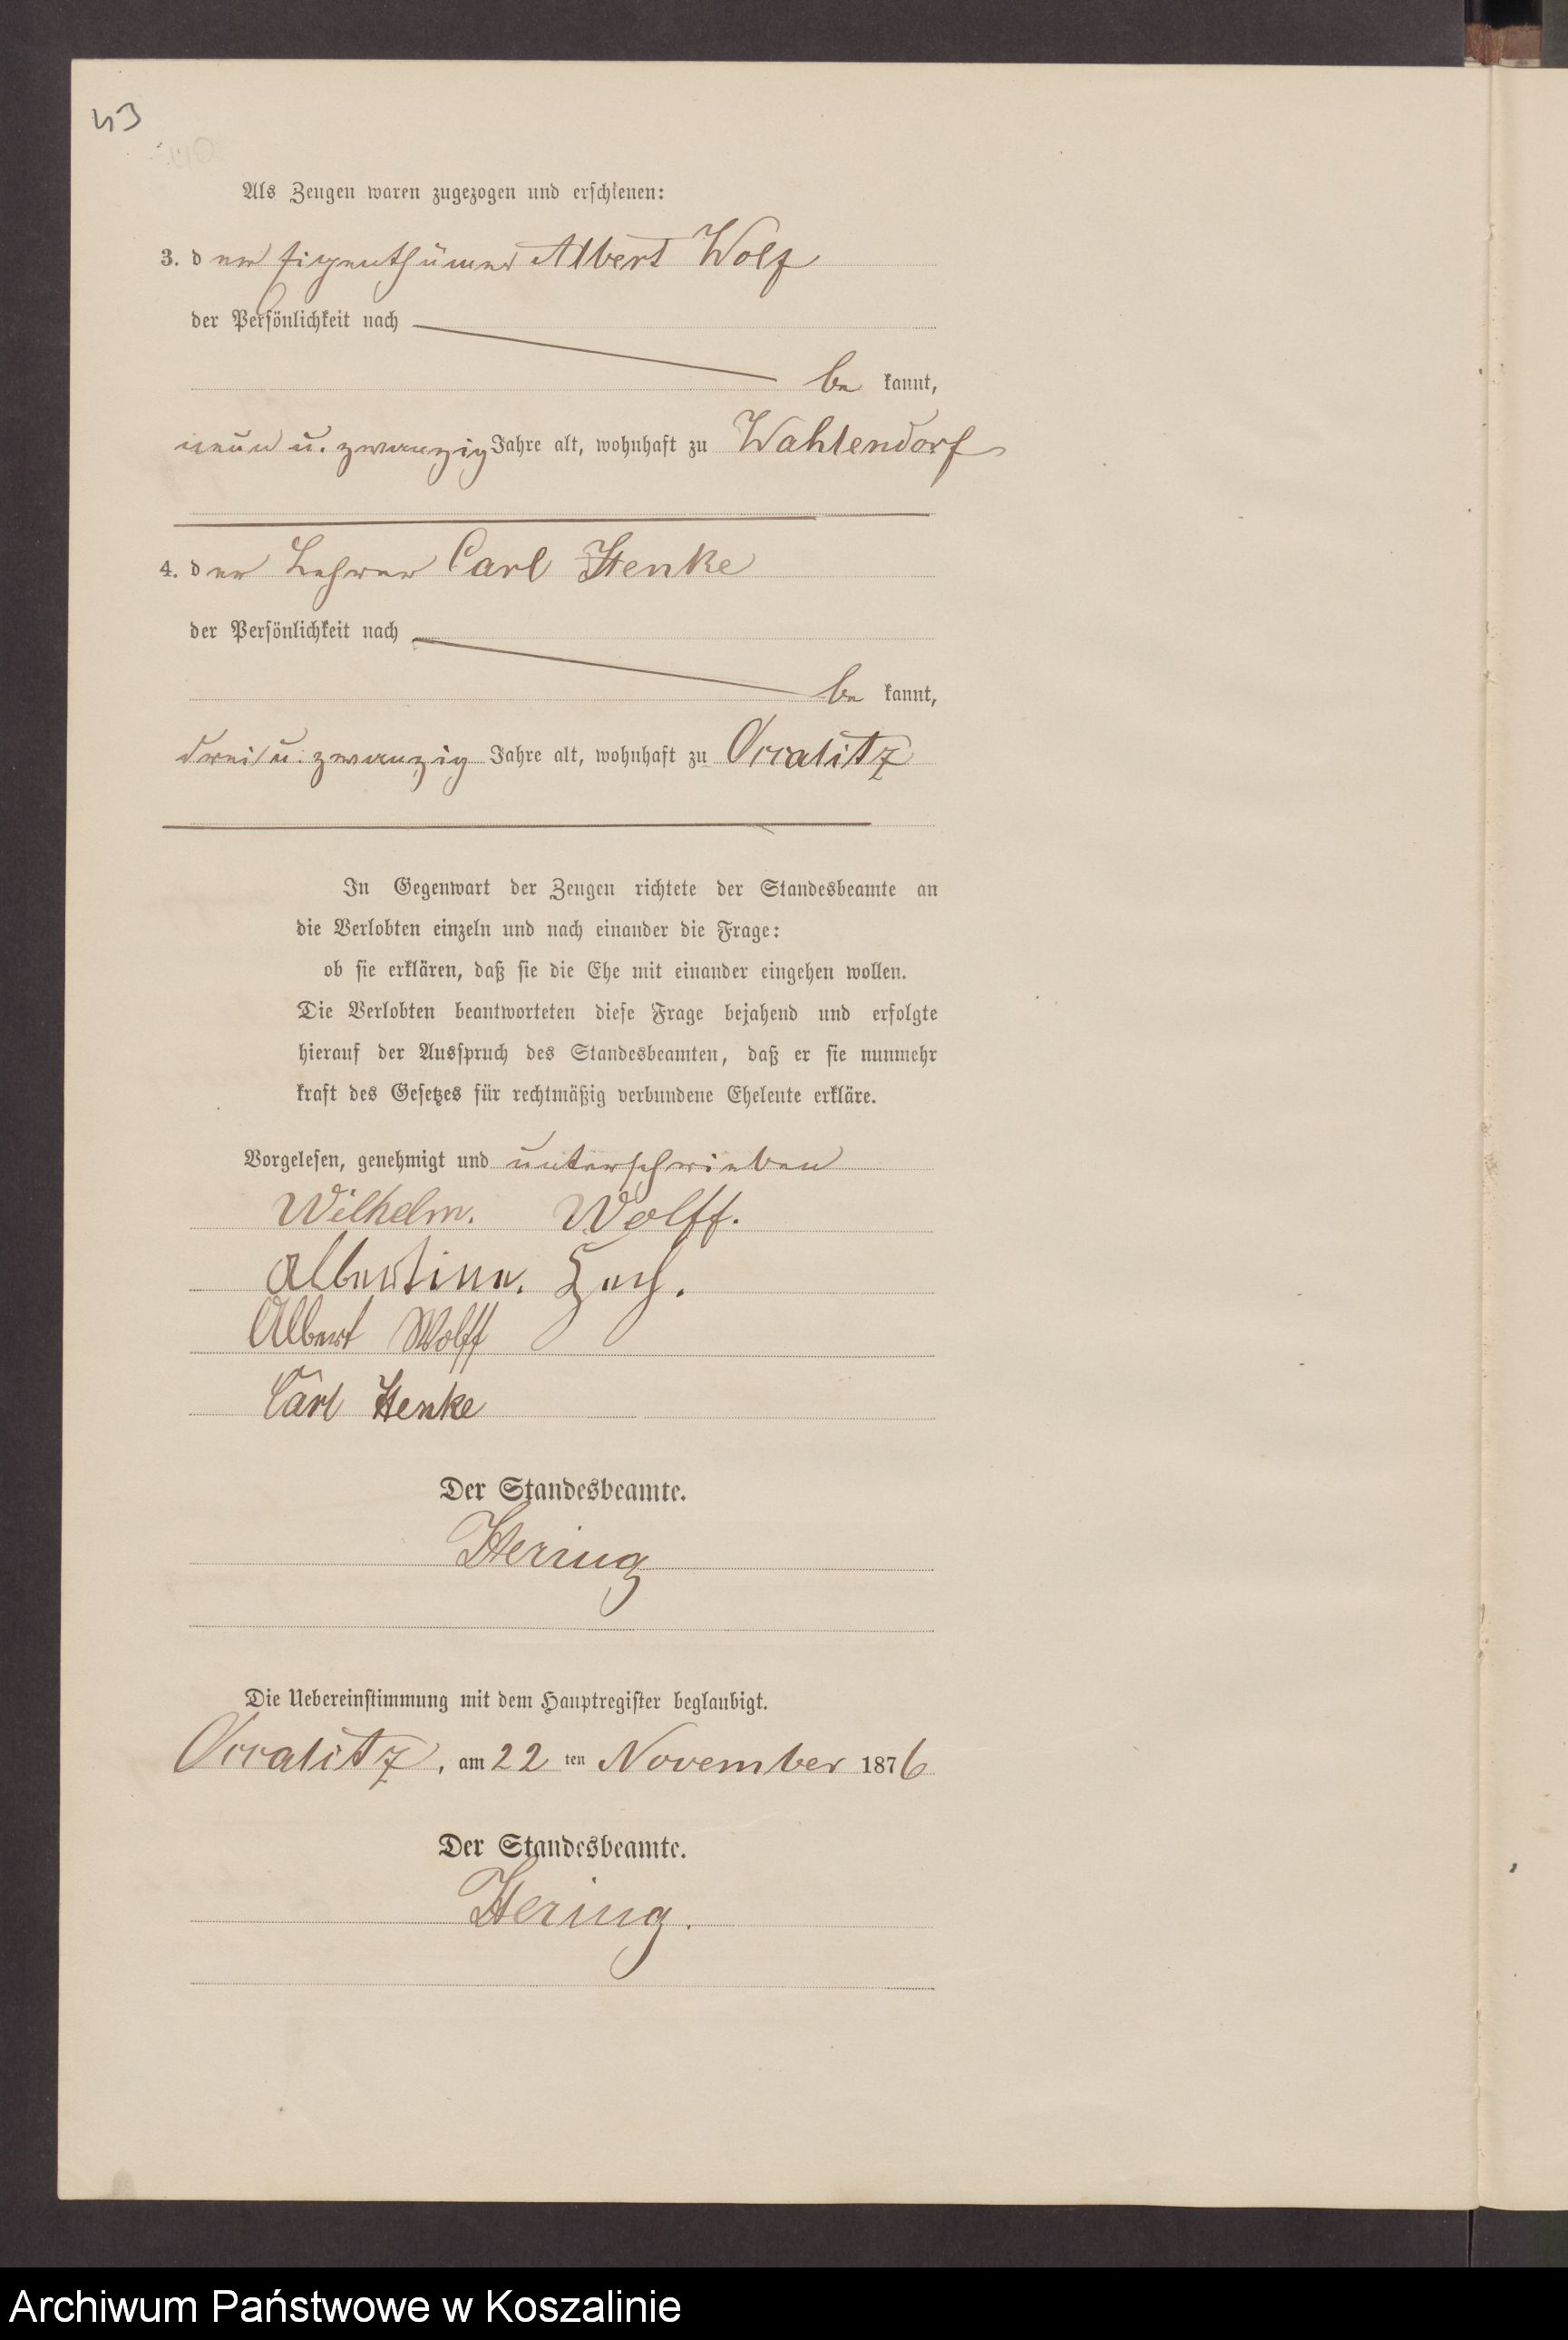 43
Als Zeugen waren zugezogen und erschienen:
3. der Eigenthümer Albert Wolf
der Persönlichkeit nach
be kannt,
neun u. zwanzig Jahre alt, wohnhaft zu Wahlendorf
4. der Lehrer Carl Henke
der Persönlichkeit nach
be kannt,
drei u. zwanzig Jahre alt, wohnhaft zu Occalitz
In Gegenwart der Zeugen richtete der Standesbeamte an
die Verlobten einzeln und nach einander die Frage:
ob sie erklären, daß sie die Ehe mit einander eingehen wollen.
Die Verlobten beantworteten diese Frage bejahend und erfolgte
hierauf der Ausspruch des Standesbeamten, daß er sie nunmehr
kraft des Gesetzes für rechtmäßig verbundene Eheleute erkläre.
Vorgelesen, genehmigt und unterschrieben
Wilhelm. Wolff.
Albertine.
Albert Wolff
Carl Henke
Der Standesbeamte.
Hering
Die Uebereinstimmung mit dem Hauptregister beglaubigt.
Occalitz, am 22 ten November 1876
Der Standesbeamte.
Hering.
Archiwum Państwowe w Koszalinie